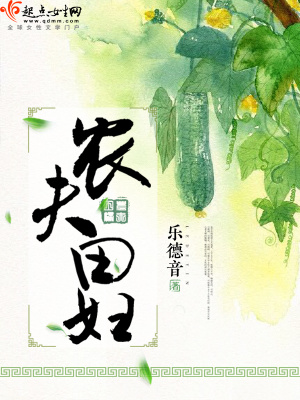 起点女生网
www.qdmm.com
全球女性文学门户
农夫田妇
乐德音
著